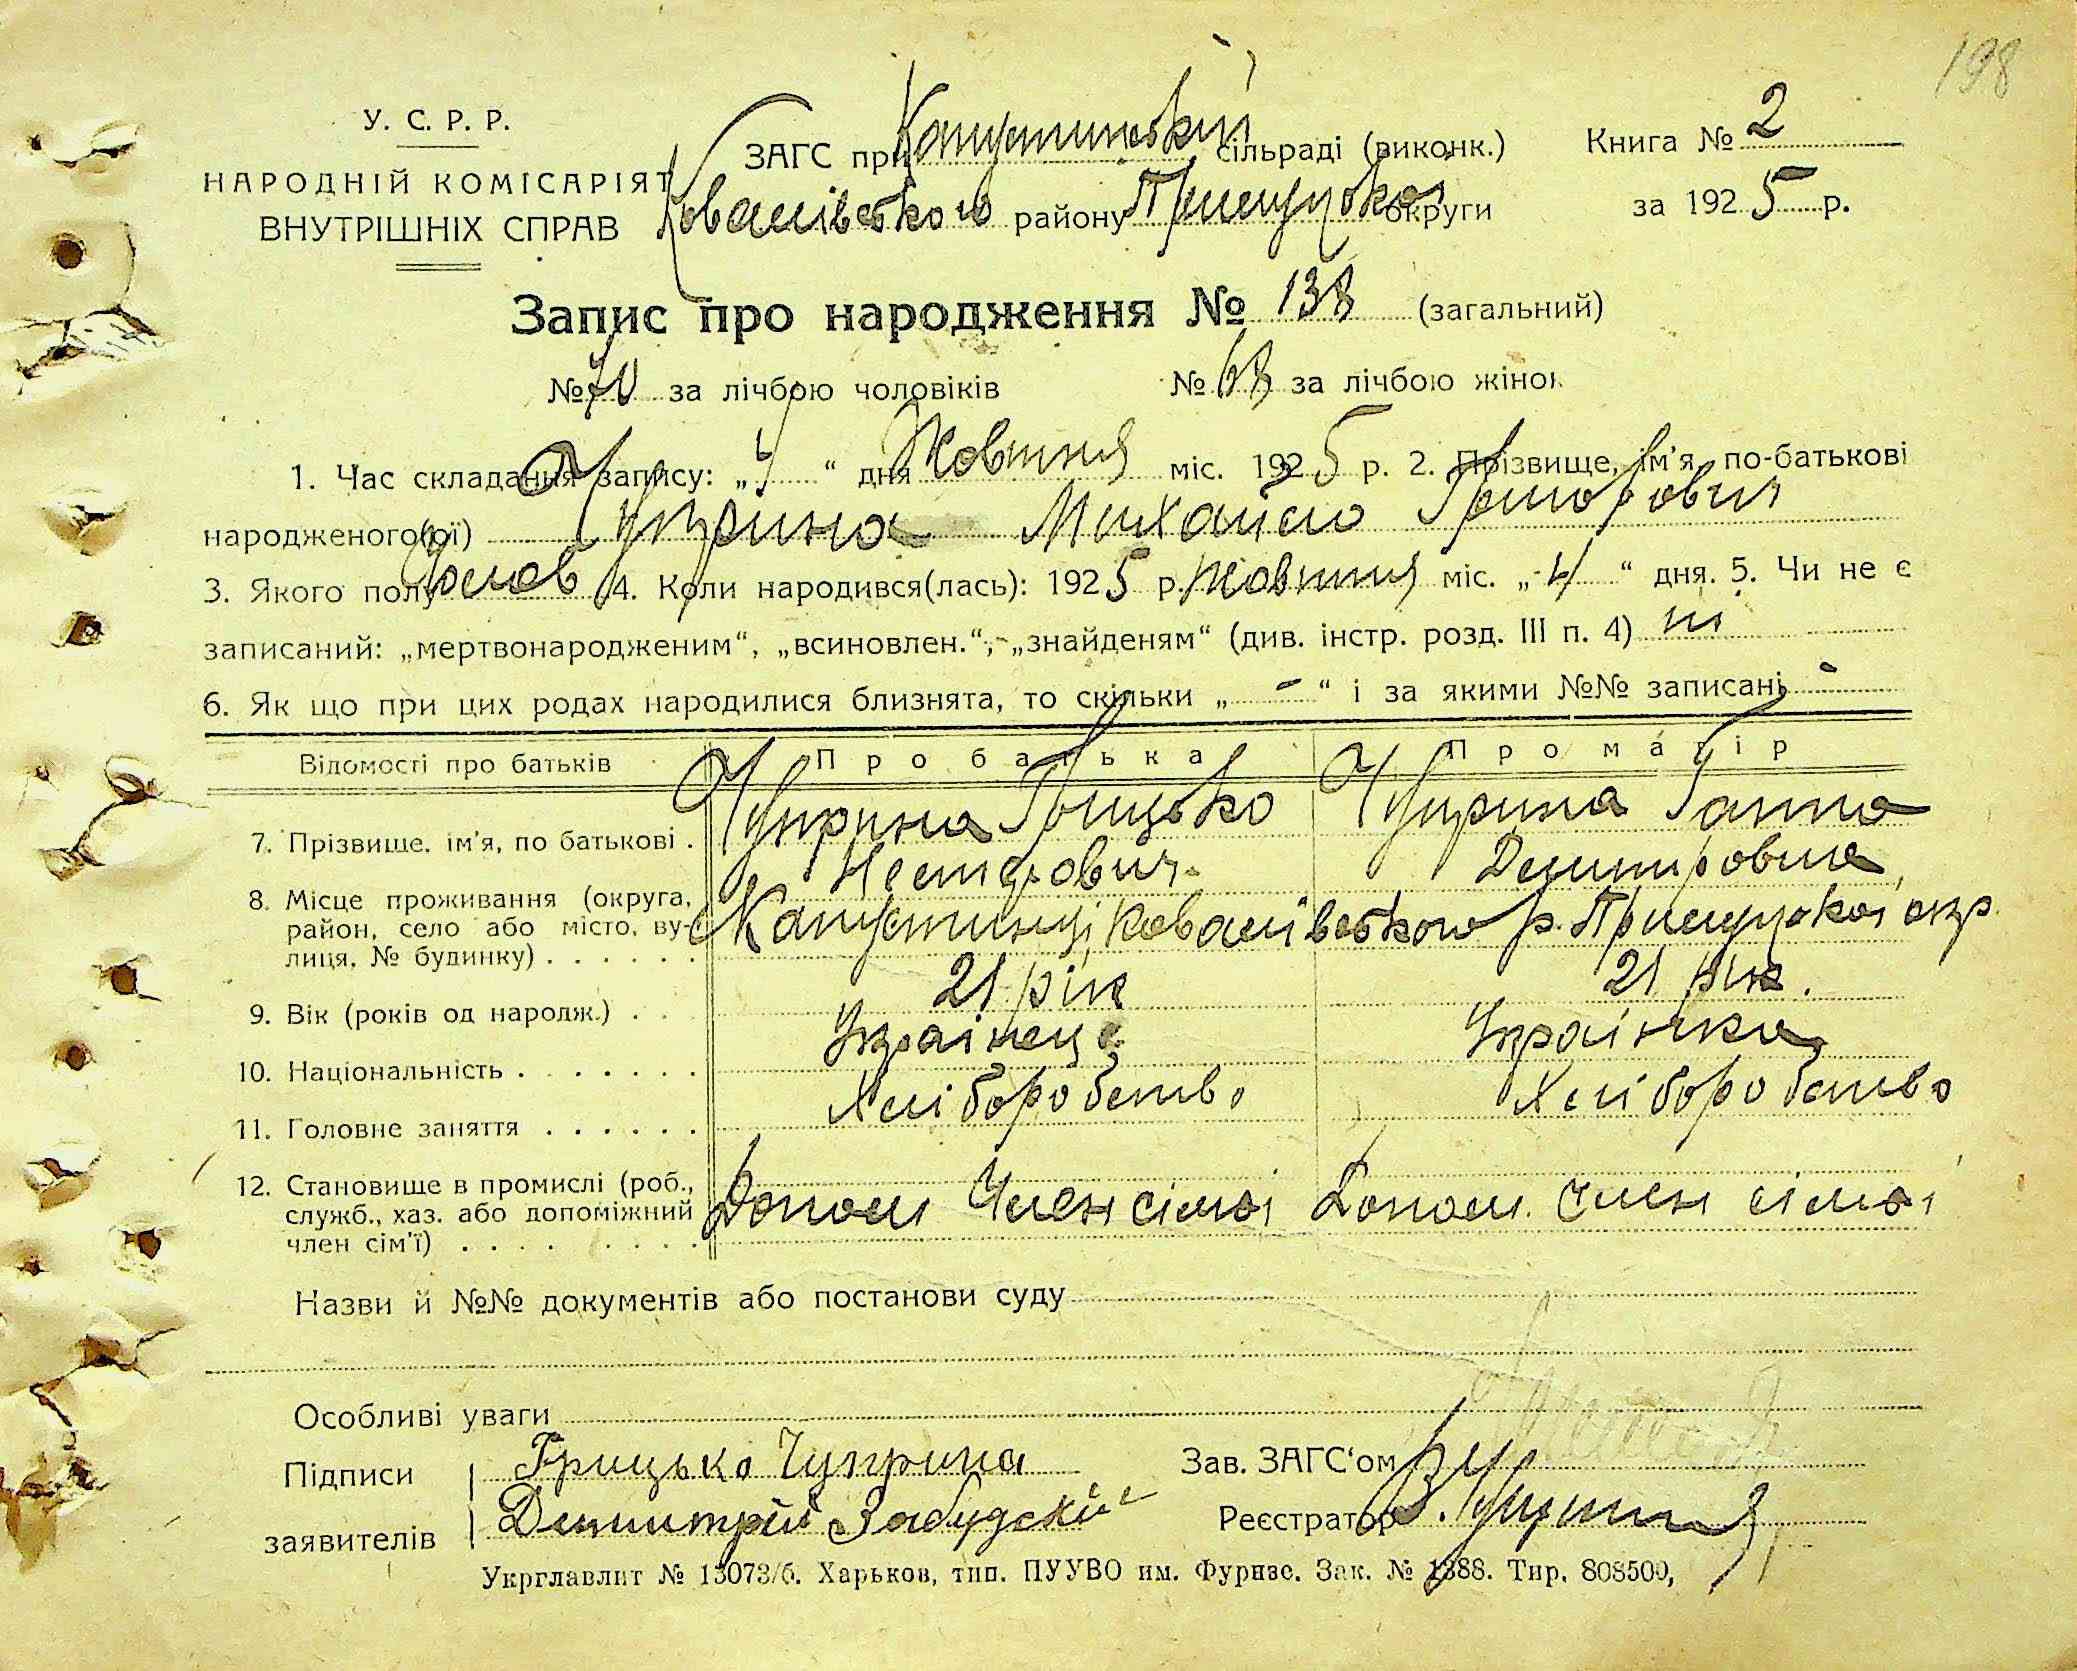 198
У. С. Р. Р.
НАРОДНІЙ КОМІСАРІЯТ
ВНУТРІШНІХ СПРАВ
ЗАГС при Капустинській сільраді (виконк.)
Ковалівського району Прилуцької округи
Книга № 2
за 1925 р.
Запис про народження № 138 (загальний)
№ 70 за лічбою чоловіків № 68 за лічбою жінок
1. Час складання запису: „ “ дня Жовтня міс. 1925 р. 2. Прізвище, ім'я, по-батькові
народженого(ої) Чуприна Михайло Григорович
3. Якого полу чолов 4. Коли народився(лась): 1925 р. Жовтня міс. „ 4 “ дня. 5. Чи не є
записаний: „мертвонародженим“, „всиновлен.“, „знайденям“ (див. інстр. розд. III п. 4) ні
6. Як що при цих родах народилися близнята, то скільки „ - “ і за якими №№ записані -
Відомості про батьків Про батька Про матір
7. Прізвище, ім'я, по батькові . Чуприна Грицько Чуприна Ганна
Нестерович Демитровна
8. Місце проживання (округа, район, село або місто, вулиця, № будинку) . . . . . . Капустинці Ковалівського р. Прилуцької окр.
9. Вік (років од народж.) . . 21 рік 21 рік.
10. Національність . . . . . . . Українець Українка
11. Головне заняття . . . . . . Хліборобство Хліборобство
12. Становище в промислі (роб., служб., хаз. або допоміжний член сім'ї) . . . . . . . . Допом Член сімої Допом. член сімої
Назви й №№ документів або постанови суду
Особливі уваги
Підписи Грицько Чуприна Зав. ЗАГС'ом
заявителів Демитрій Забудскій Реєстратор
Укрглавлит № 13073/б. Харьков, тип. ПУУВО им. Фрунзе. Зак. № 1388. Тир. 808500,